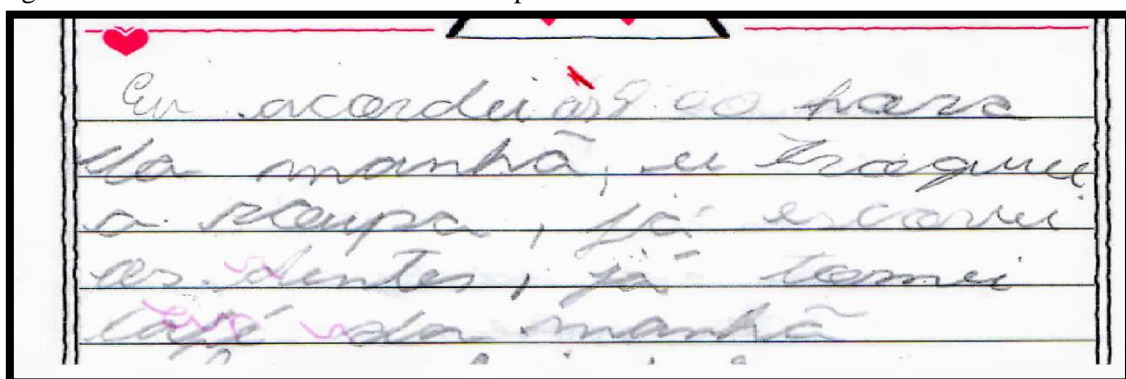 Eu acordei às 9:00 hora
da manhã, eu troquei
a roupa, já escovei
os dentes, já tomei
café da manhã